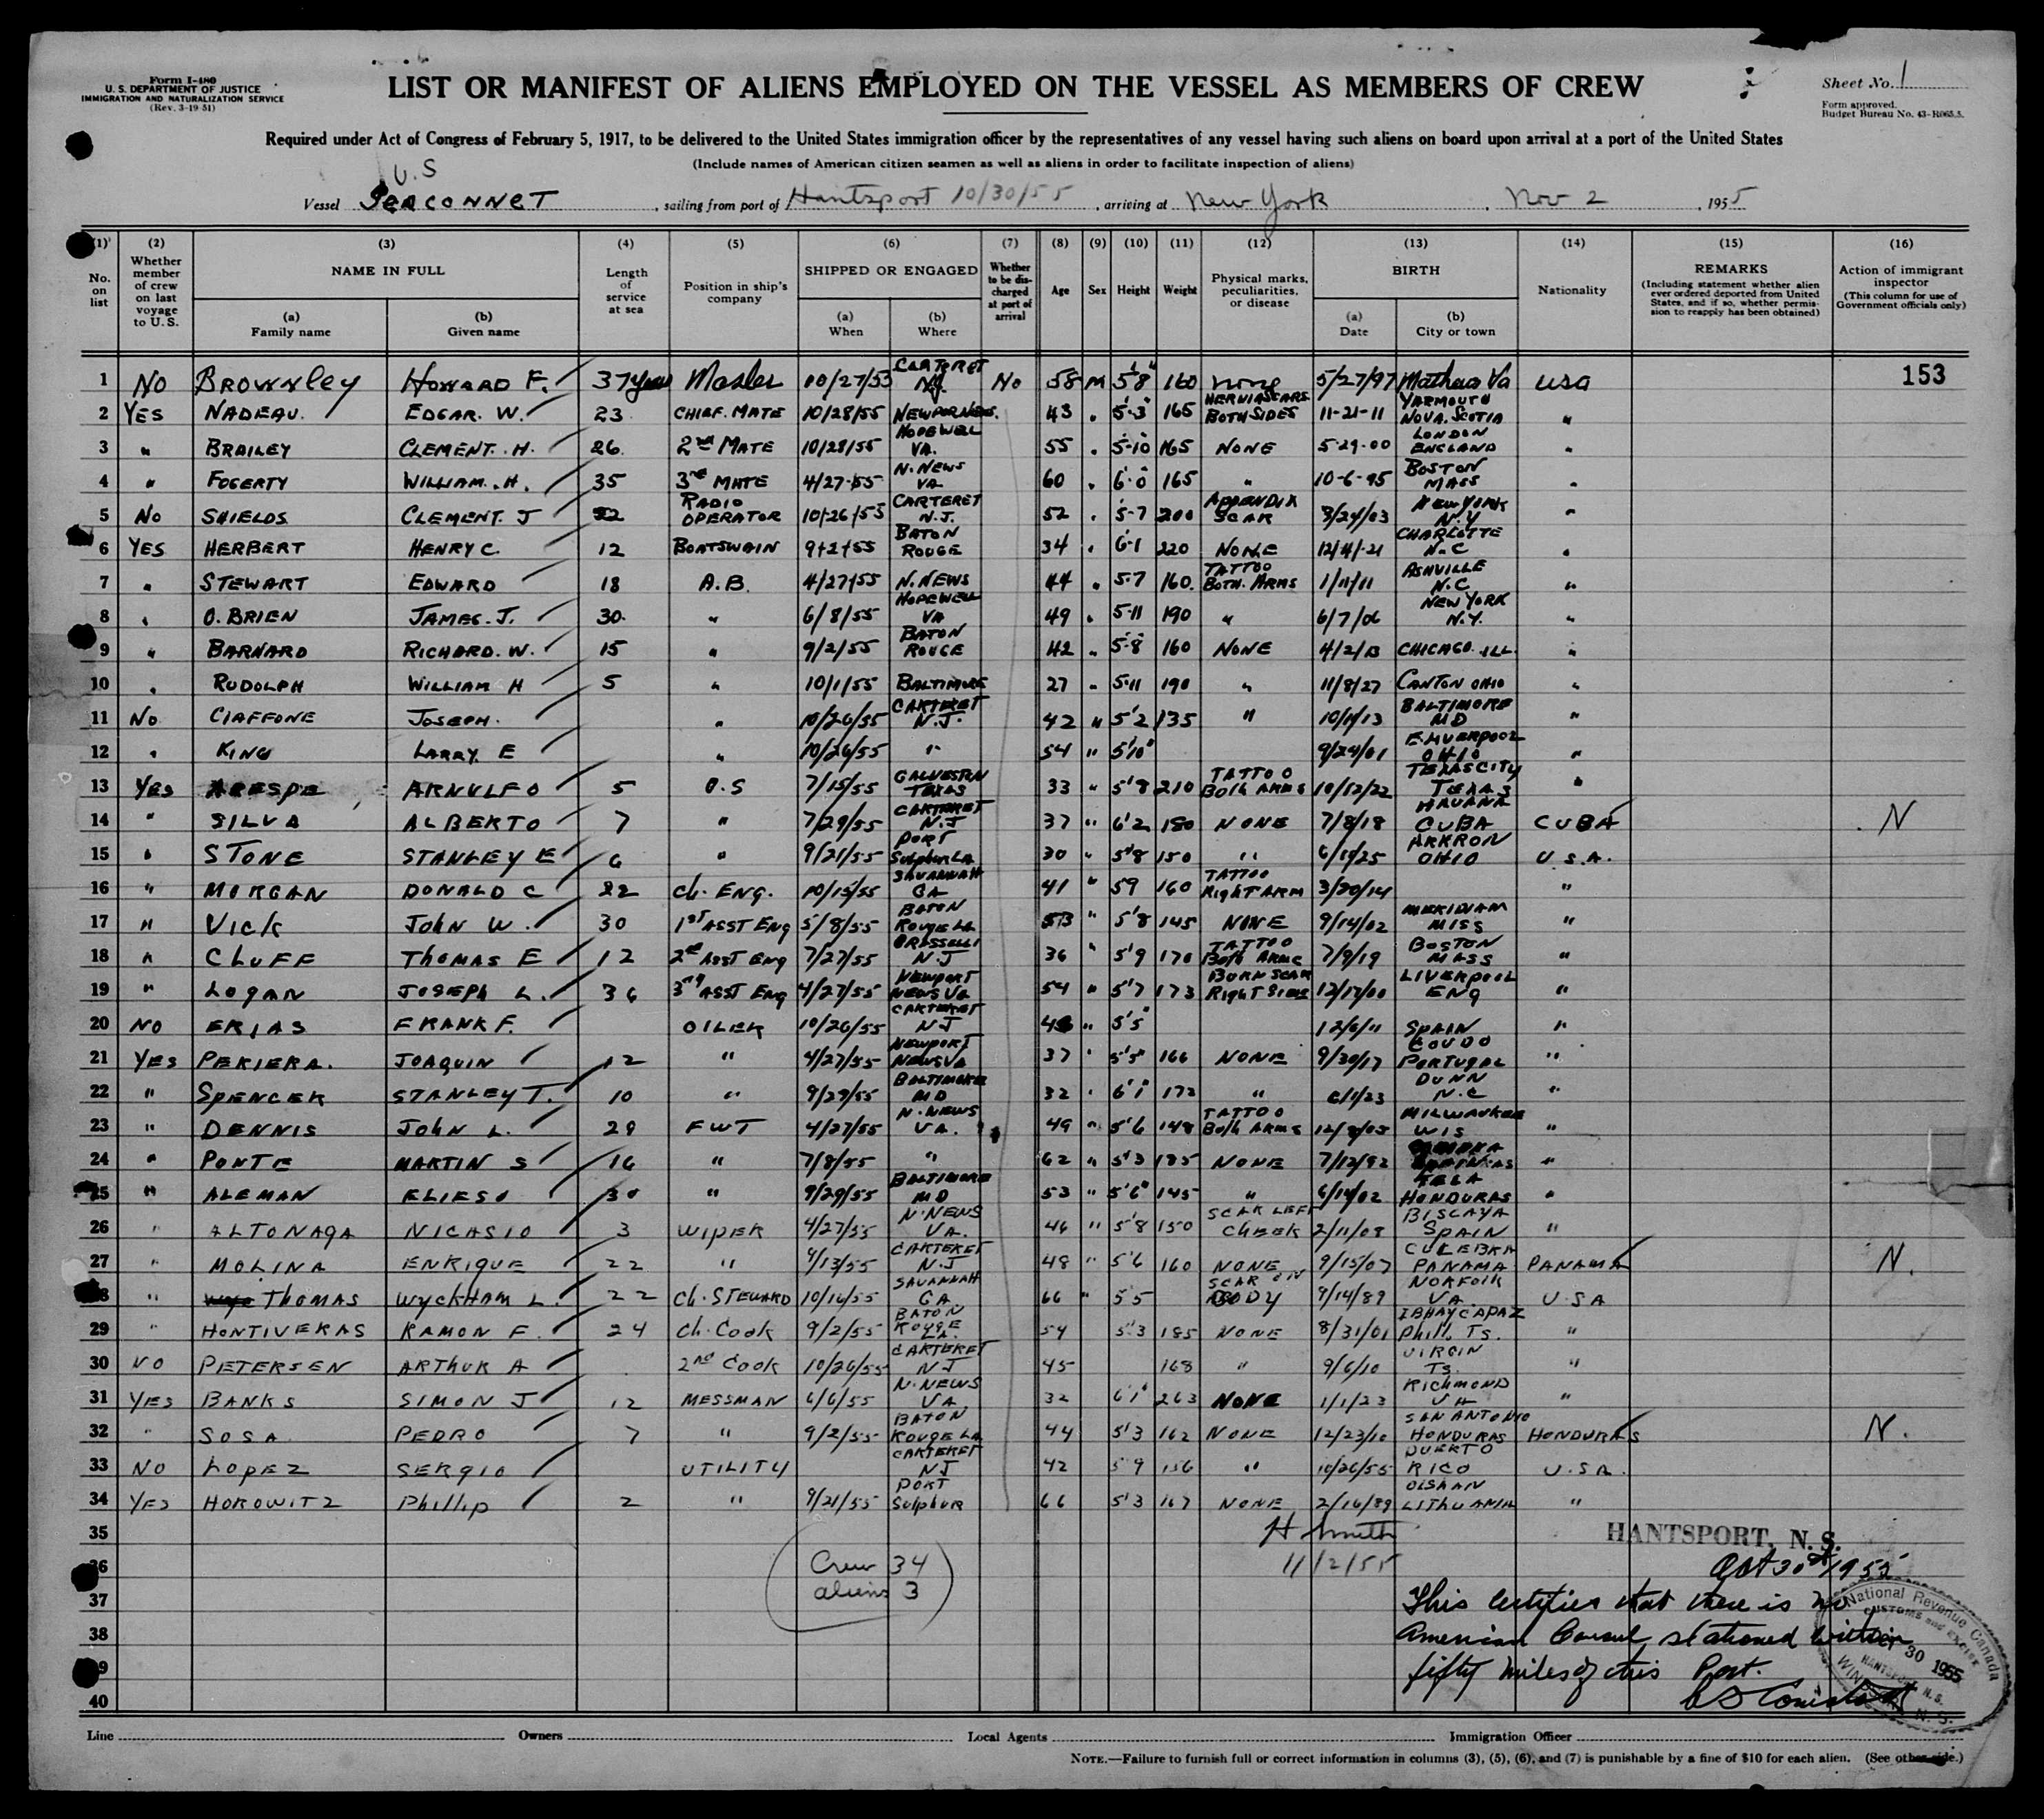 Form I-480
U. S. DEPARTMENT OF JUSTICE
IMMIGRATION AND NATURALIZATION SERVICE
(Rev. 3-19-51)
LIST OR MANIFEST OF ALIENS EMPLOYED ON THE VESSEL AS MEMBERS OF CREW
Sheet No. 1
Form approved.
Budget Bureau No. 43-R065.5.
Required under Act of Congress of February 5, 1917, to be delivered to the United States immigration officer by the representatives of any vessel having such aliens on board upon arrival at a port of the United States
(Include names of American citizen seamen as well as aliens in order to facilitate inspection of aliens)
U.S
Vessel SEACONNET, sailing from port of Hantsport 10/30/55, arriving at New York, Nov 2, 1955
(1) (2) (3) (4) (5) (6) (7) (8) (9) (10) (11) (12) (13) (14) (15) (16)
No. on list
Whether member of crew on last voyage to U. S.
NAME IN FULL
(a) Family name
(b) Given name
Length of service at sea
Position in ship's company
SHIPPED OR ENGAGED
(a) When
(b) Where
Whether to be discharged at port of arrival
Age
Sex
Height
Weight
Physical marks, peculiarities, or disease
BIRTH
(a) Date
(b) City or town
Nationality
REMARKS
(Including statement whether alien ever ordered deported from United States, and if so, whether permission to reapply has been obtained)
Action of immigrant inspector
(This column for use of Government officials only)
1 No BROWNLEY HOWARD F. 37 years Master 10/27/53 CARTERET NJ. No 58 M 5'8" 160 none 5/27/97 Mathews Va USA 153
2 YES NADEAU. EDGAR. W. 23 CHIEF. MATE 10/28/55 NEWPORNEWS. 43 " 5-3 165 HERNIA SCARS BOTH SIDES 11-21-11 YARMOUTH NOVA. SCOTIA "
3 " BRAILEY CLEMENT. H. 26. 2ND MATE 10/28/55 HOPEWELL VA. 55 " 5-10 165 NONE 5-29-00 LONDON ENGLAND "
4 " FOGERTY WILLIAM. H. 35 3RD MATE 4/27-55 N. NEWS VA 60 " 6-0 165 " 10-6-95 BOSTON MASS "
5 No SHIELDS CLEMENT. J RADIO OPERATOR 10/26/53 CARTERET N.J. 52 " 5-7 200 APPENDIX SCAR 3/24/03 NEW YORK N.Y "
6 YES HERBERT HENRY C. 12 BOATSWAIN 9/2/55 BATON ROUGE 34 " 6-1 220 NONE 12/4/-21 CHARLOTTE N.C "
7 " STEWART EDWARD 18 A.B. 4/27/55 N. NEWS 44 " 5-7 160. TATTOO BOTH. ARMS 1/11/11 ASHVILLE N.C. "
8 " O.BRIEN JAMES. J. 30. " 6/8/55 HOPEWELL VA 49 " 5-11 190 " 6/7/06 NEW YORK N.Y. "
9 " BARNARD RICHARD. W. 15 " 9/2/55 BATON ROUGE 42 " 5-8 160 NONE 4/2/13 CHICAGO. ILL. "
10 " RUDOLPH WILLIAM H 5 " 10/1/55 BALTIMORE 27 " 5-11 190 " 11/8/27 CANTON OHIO "
11 No CIAFFONE JOSEPH. " 10/26/55 CARTERET N.J. 42 " 5'2 135 " 10/1/13 BALTIMORE MD "
12 " KING LARRY. E " 10/26/55 " 54 " 5'10" 9/24/01 E. LIVERPOOL OHIO "
13 YES ARNULFO 5 O.S 7/15/55 GALVESTON TEXAS 33 " 5'8 210 TATTOO Both ARMS 10/12/22 TEXAS CITY TEXAS "
14 " SILVA ALBERTO 7 " 7/29/55 CARTERET N.J 37 " 6'2 180 NONE 7/8/18 HAVANA CUBA CUBA N
15 " STONE STANLEY E 6 " 9/21/55 PORT Sulphur LA 30 " 5'8 150 " 6/19/25 AKRON OHIO U.S.A.
16 " MORGAN DONALD C 22 Ch. ENG. 10/15/55 SAVANNAH GA 41 " 59 160 TATTOO Right ARM 3/20/14 "
17 " VICK John W. 30 1ST ASST ENG 5/8/55 BATON ROUGE LA 53 " 5'8 145 NONE 9/14/02 MERIDIAN MISS "
18 " CLUFF THOMAS E 12 2nd ASST ENG 7/27/55 GRASSELLI N.J 36 " 5'9 170 TATTOO Both ARMS 7/9/19 BOSTON MASS "
19 " LOGAN JOSEPH L. 36 3rd ASST ENG 4/27/55 NEWPORT NEWS VA 54 " 5'7 173 BURN SCAR Right SIDE 12/17/00 LIVERPOOL ENG "
20 NO FRANK F. OILER 10/26/55 CARTERET NJ " 5'5" 12/6/11 SPAIN "
21 YES PERIERA. JOAQUIN 12 " 4/27/55 NEWPORT NEWS VA 37 " 5'5" 166 NONE 9/30/17 PORTUGAL "
22 " SPENCER STANLEY T. 10 " 9/29/55 BALTIMORE MD 32 " 6'1" 172 " 6/1/23 DUNN N.C "
23 " DENNIS John L. 29 FWT 4/27/55 N. NEWS VA. 49 " 5'6 148 TATTOO Both ARMS 12/8/05 MILWAUKEE WIS "
24 " PONTE MARTIN S 16 " 7/8/55 " 62 " 5'3 185 NONE 7/12/92 "
25 " ALEMAN ELIESO 30 " 9/29/55 BALTIMORE MD 53 " 5'6" 145 " 6/14/02 TELA HONDURAS "
26 " ALTONAGA NICASIO 3 WIPER 4/27/55 N. NEWS VA. 46 " 5'8 150 SCAR LEFT CHEEK 2/11/09 BISCAYA SPAIN "
27 " MOLINA ENRIQUE 22 " 9/13/55 CARTERET N.J 48 " 5'6 160 NONE 9/15/07 CULEBRA PANAMA PANAMA N.
28 " THOMAS WYCKHAM L. 22 Ch. STEWARD 10/16/55 SAVANNAH GA 66 " 5'5 SCAR ON BODY 9/14/89 NORFOLK VA. U.S.A
29 " HONTIVERAS RAMON F. 24 Ch. Cook 9/2/55 BATON ROUGE LA. 54 5'3 185 NONE 8/31/01 IBHAYCAPAZ Phill. Is. "
30 NO PETERSEN ARTHUR A 2ND Cook 10/26/55 CARTERET NJ 45 168 " 9/6/10 VIRGIN Is. "
31 YES BANKS SIMON J 12 MESSMAN 6/6/55 N. NEWS VA 32 6'1" 263 NONE 1/1/23 RICHMOND VA "
32 " SOSA PEDRO 7 " 9/2/55 BATON ROUGE LA 44 5'3 162 NONE 12/23/10 SAN ANTONIO HONDURAS HONDURAS N.
33 NO LOPEZ SERGIO UTILITY CARTERET NJ 42 5'9 156 " 10/26/55 PUERTO RICO U.S.A.
34 YES HOROWITZ Phillip 2 " 9/21/55 PORT Sulphur 66 5'3 167 NONE 2/16/89 LITHUANIA "
35 H Smith HANTSPORT, N. S.
36 Crew 34 11/2/55 Oct 30th 1955
37 aliens 3 This certifies that there is no
38 American Consul stationed within
39 fifty miles of this Port.
40
National Revenue Canada
CUSTOMS and EXCISE
OCT 30 1955
HANTSPORT N. S.
WINDSOR, N. S.
Line Owners Local Agents Immigration Officer
NOTE.—Failure to furnish full or correct information in columns (3), (5), (6), and (7) is punishable by a fine of $10 for each alien. (See other side.)